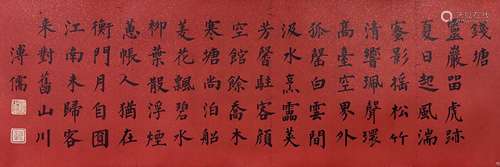 錢塘
靈巖留虎跡
夏日起風湍
客影搖松竹
清響珮聲環
高臺空界外
孤磬白雲間
汲水烹靈
芳馨駐客顏
空館餘喬木
寒塘尚泊船
花飄碧水
柳葉散浮煙
蕙帳人猶在
衡門月自圓
江南未歸客
來對舊山川
溥儒